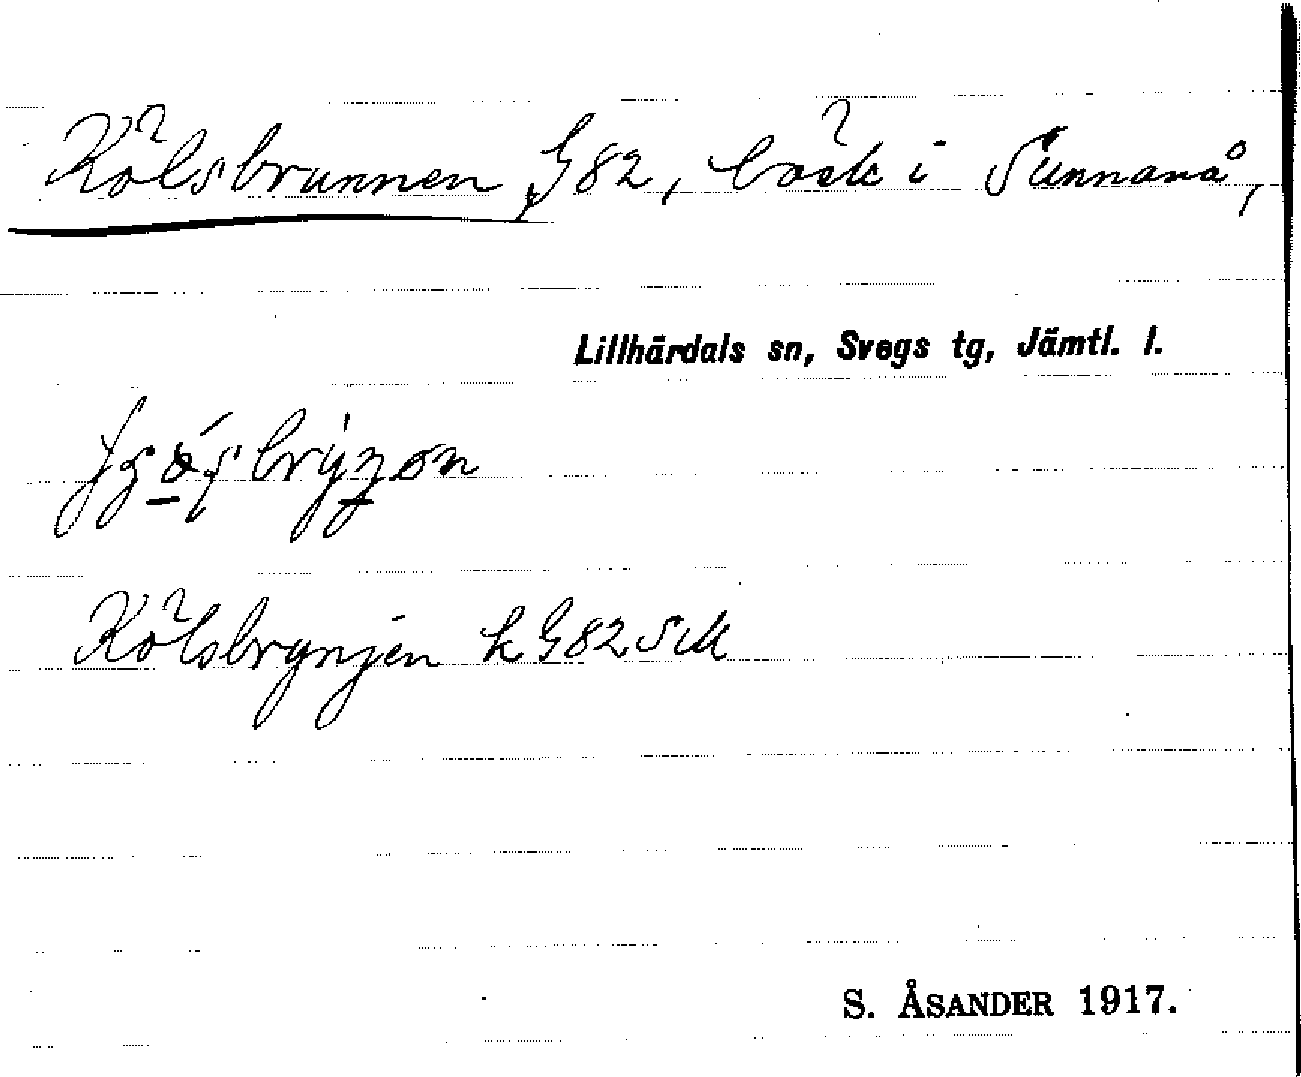 Kölsbrunnen G82, bäck i Sunnanå,
Lillhärdals sn, Svegs tg, Jämtl. l.
Kölsbrynjen k G82 SM
S. ÅSANDER 1917.